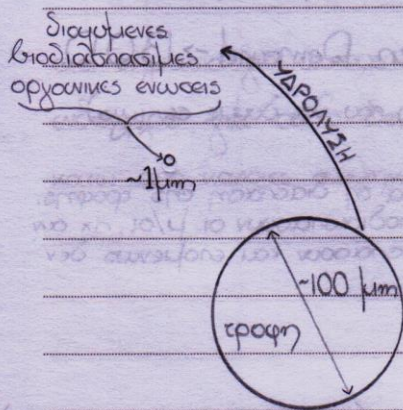 διαλυμενες
βιοδιασπασιμες
οργανικες ενωσεις
~1μm
ΥΔΡΟΛΥΣΗ
~100 μm
τροφη